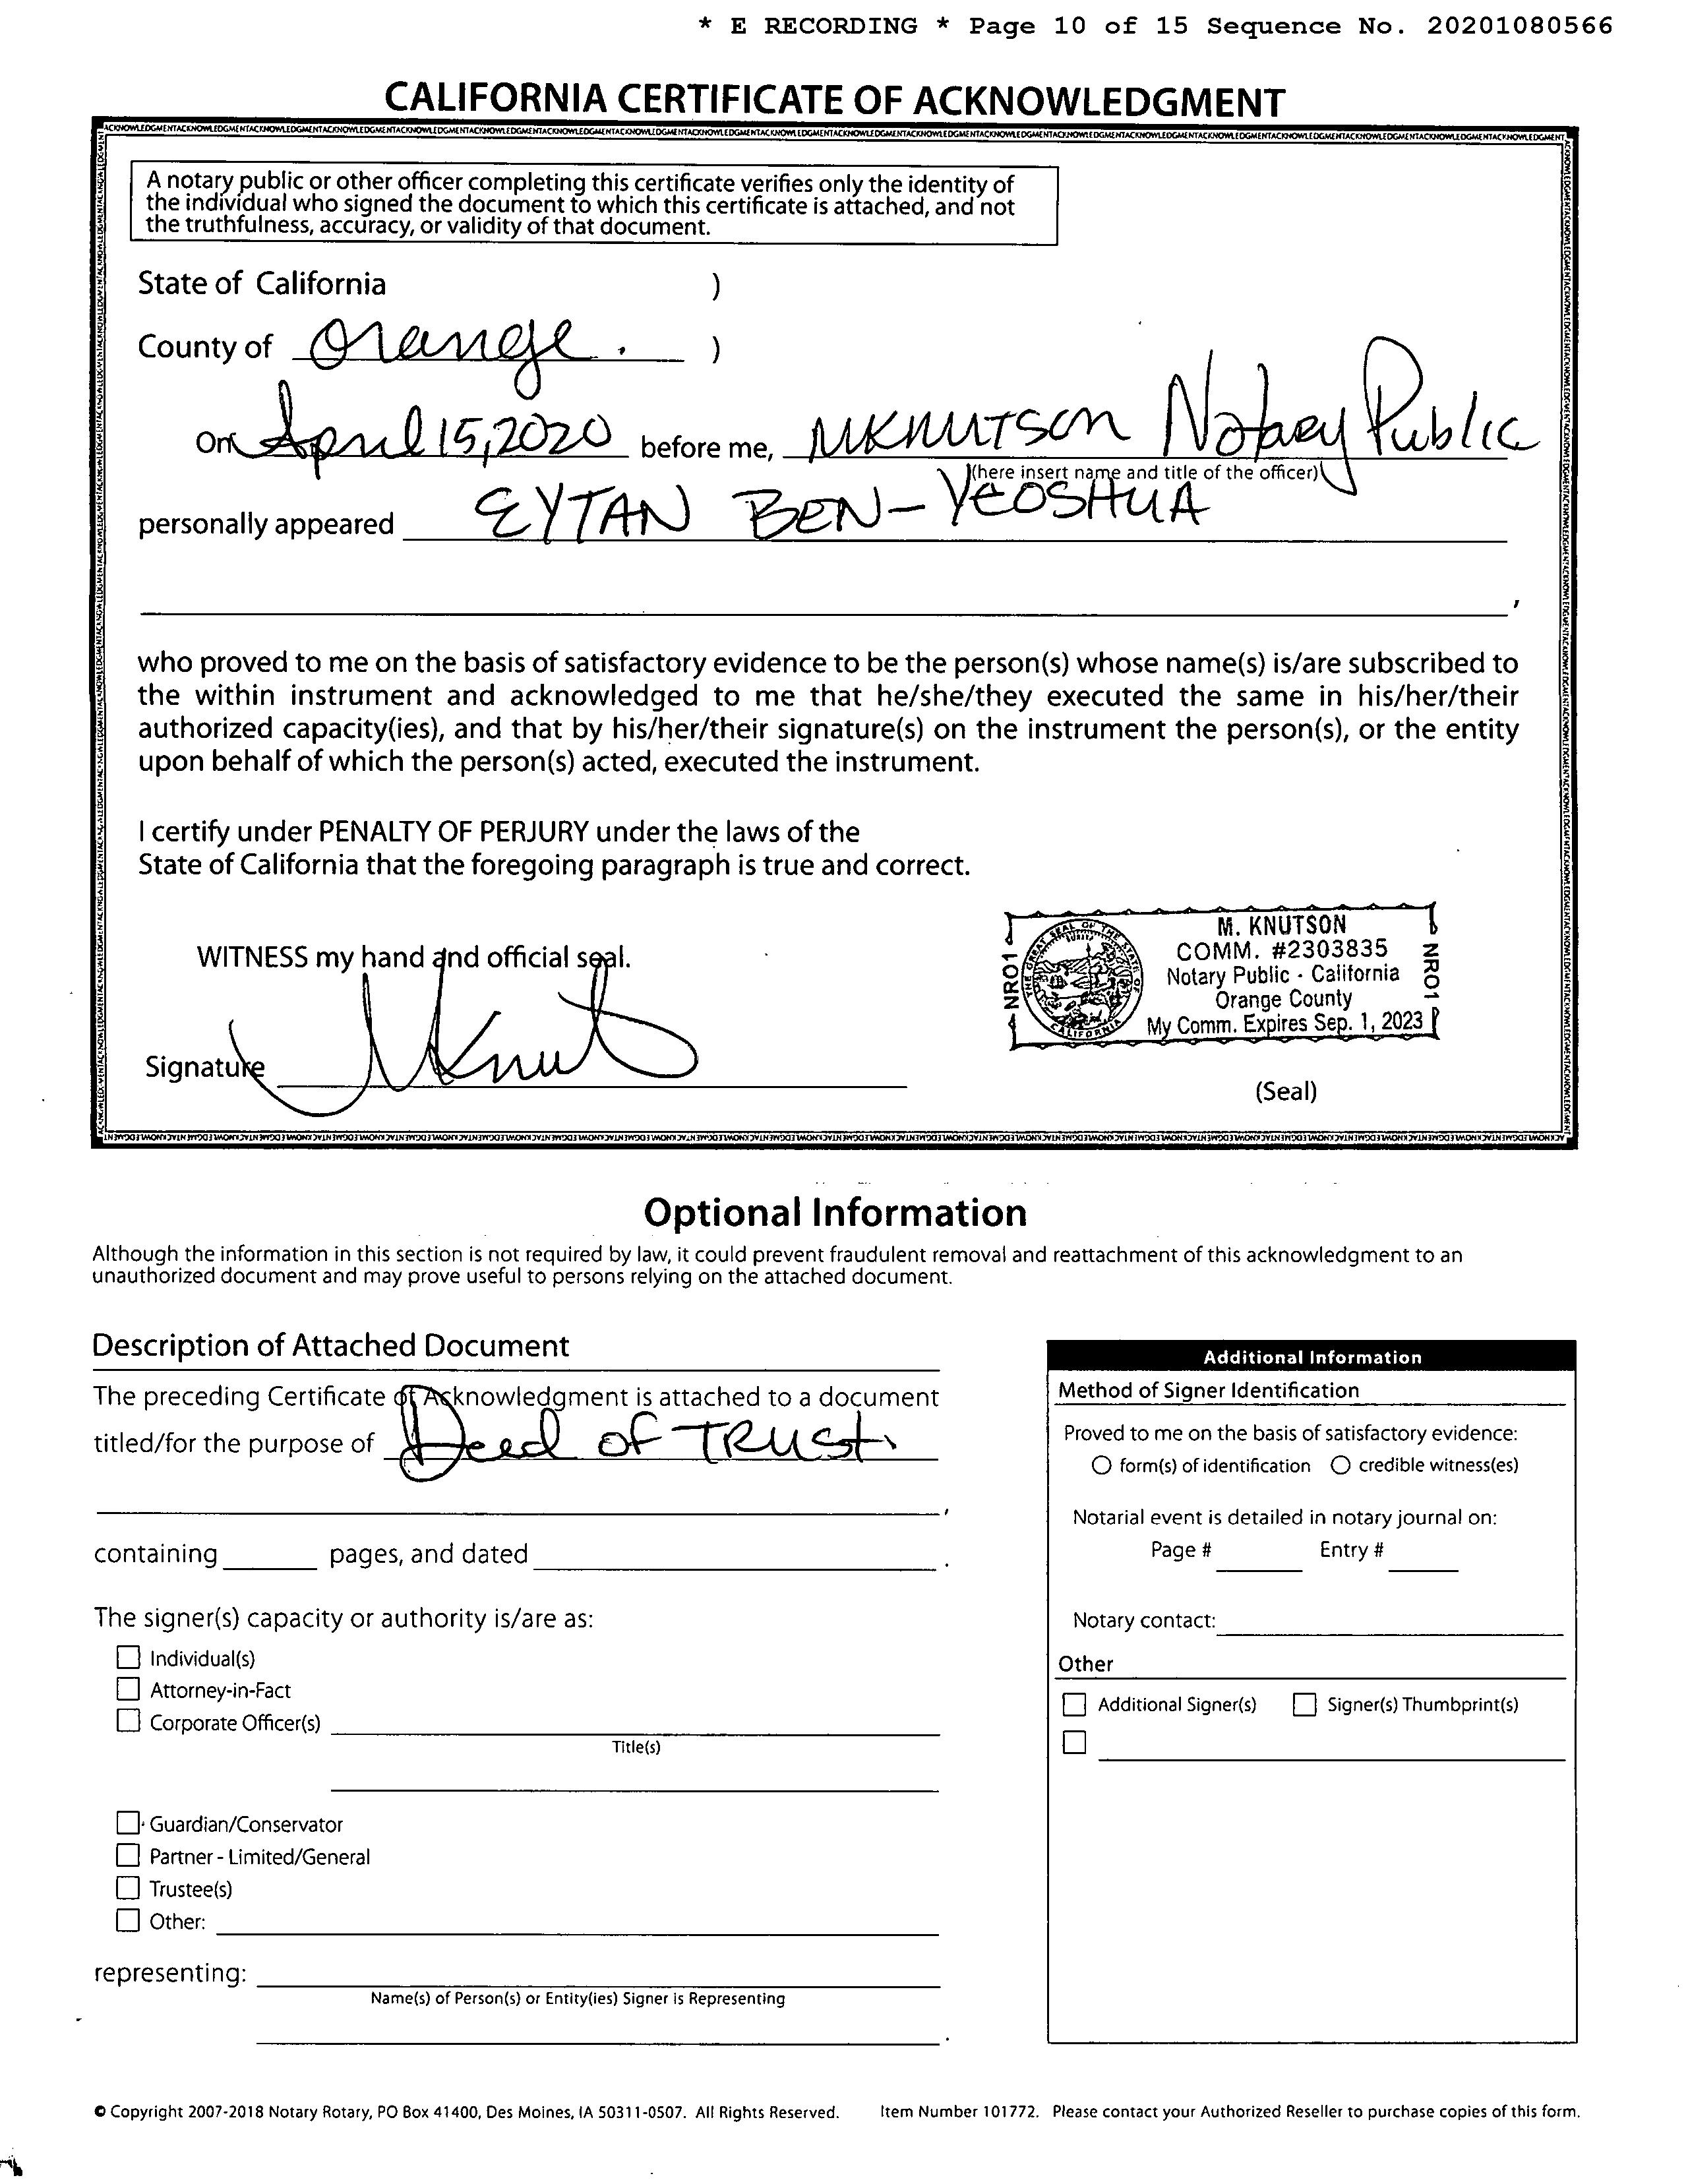 * E RECORDING * Page 10 of 15 Sequence No. 20201080566
CALIFORNIA CERTIFICATE OF ACKNOWLEDGMENT
A notary public or other officer completing this certificate verifies only the identity of
the individual who signed the document to which this certificate is attached, and not
the truthfulness, accuracy, or validity of that document.
State of California )
County of Orange. )
On April 15, 2020 before me, MKNUTSON Notary Public
(here insert name and title of the officer)
personally appeared EYTAN BEN-YEOSHUA
,
who proved to me on the basis of satisfactory evidence to be the person(s) whose name(s) is/are subscribed to
the within instrument and acknowledged to me that he/she/they executed the same in his/her/their
authorized capacity(ies), and that by his/her/their signature(s) on the instrument the person(s), or the entity
upon behalf of which the person(s) acted, executed the instrument.
I certify under PENALTY OF PERJURY under the laws of the
State of California that the foregoing paragraph is true and correct.
WITNESS my hand and official seal.
Signature MKnut
NRO1
THE GREAT SEAL OF THE STATE OF CALIFORNIA
M. KNUTSON
COMM. #2303835
Notary Public - California
Orange County
My Comm. Expires Sep. 1, 2023
NRO1
(Seal)
Optional Information
Although the information in this section is not required by law, it could prevent fraudulent removal and reattachment of this acknowledgment to an
unauthorized document and may prove useful to persons relying on the attached document.
Description of Attached Document
The preceding Certificate of Acknowledgment is attached to a document
titled/for the purpose of Deed of TRUST
,
containing pages, and dated .
The signer(s) capacity or authority is/are as:
Individual(s)
Attorney-in-Fact
Corporate Officer(s)
Title(s)
Guardian/Conservator
Partner - Limited/General
Trustee(s)
Other:
representing:
Name(s) of Person(s) or Entity(ies) Signer is Representing
.
Additional Information
Method of Signer Identification
Proved to me on the basis of satisfactory evidence:
form(s) of identification credible witness(es)
Notarial event is detailed in notary journal on:
Page # Entry #
Notary contact:
Other
Additional Signer(s) Signer(s) Thumbprint(s)
© Copyright 2007-2018 Notary Rotary, PO Box 41400, Des Moines, IA 50311-0507. All Rights Reserved. Item Number 101772. Please contact your Authorized Reseller to purchase copies of this form.